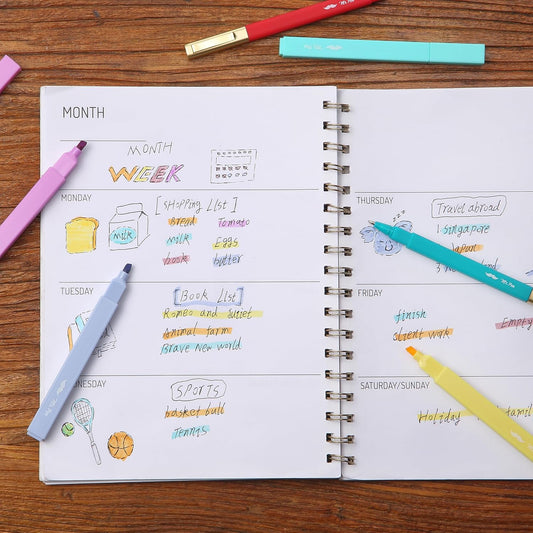 MONTH
MONTH
WEEK
MONDAY
[SHopping LIst]
Bread Tomato
Milk Eggs
book butter
MILK
TUESDAY
[Book LIst]
Romeo and Juliet
Animal farm
Brave New world
WEDNESDAY
SPORTS
basket ball
Tennis
THURSDAY
Travel abroad
1 Singapore
Japan
3
FRIDAY
finish
client work Empty
SATURDAY/SUNDAY
Holiday famil